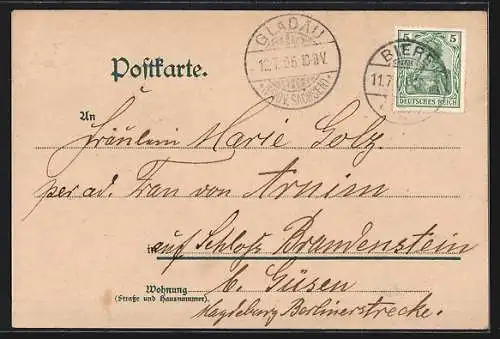 GLADAU
12.7.05.10-11V.
(PROV. SACHSEN)
BIERE
11.7
5 5
DEUTSCHES REICH
Postkarte.
An
Fräulein Marie Golz.
per ad. Frau von Arnim
in auf Schloß Brandenstein
b. Güsen
Wohnung
(Straße und Hausnummer).
Magdeburg Berlinerstrecke.